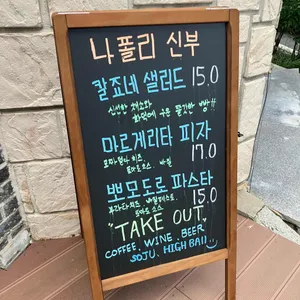 나폴리 신부
칼죠네 샐러드 15.0
신선한 채소와
화덕에 구운 쫄깃한 빵
마르게리타 피자
17.0
토마토소스 바질
뽀모도로 파스타
15.0
토마토소스
"TAKE OUT"
COFFEE. WINE. BEER
SOJU. HIGH BALL